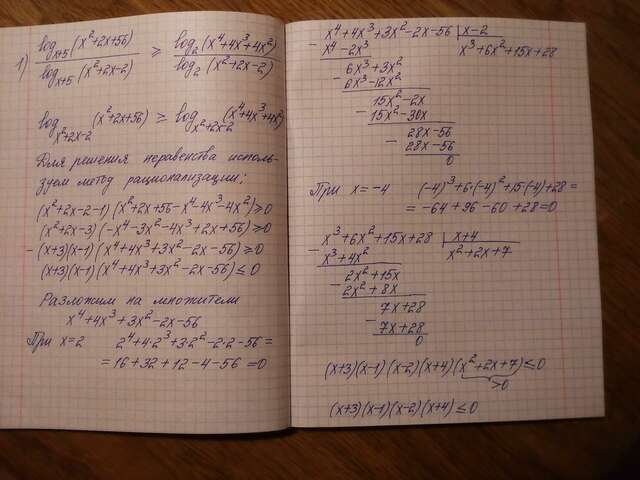 1) log_{x+5}(x²+2x+56) / log_{x+5}(x²+2x-2) ≥ log_2(x⁴+4x³+4x²) / log_2(x²+2x-2)
log_{x²+2x-2}(x²+2x+56) ≥ log_{x²+2x-2}(x⁴+4x³+4x²)
Для решения неравенства исполь-
зуем метод рационализации;
(x²+2x-2-1)(x²+2x+56-x⁴-4x³-4x²)≥0
(x²+2x-3)(-x⁴-4x³-3x²+2x+56)≥0
-(x+3)(x-1)(x⁴+4x³+3x²-2x-56)≥0
(x+3)(x-1)(x⁴+4x³+3x²-2x-56)≤0
Разложим на множители
x⁴+4x³+3x²-2x-56
При x=2 2⁴+4·2³+3·2²-2·2-56=
=16+32+12-4-56=0
x⁴+4x³+3x²-2x-56 | x-2
- x⁴-2x³ | x³+6x²+15x+28
6x³+3x²
- 6x³-12x²
15x²-2x
- 15x²-30x
28x-56
- 28x-56
0
При x=-4 (-4)³+6·(-4)²+15(-4)+28=
=-64+96-60+28=0
x³+6x²+15x+28 | x+4
- x³+4x² | x²+2x+7
2x²+15x
- 2x²+8x
7x+28
- 7x+28
0
(x+3)(x-1)(x-2)(x+4)(x²+2x+7)≤0
>0
(x+3)(x-1)(x-2)(x+4)≤0